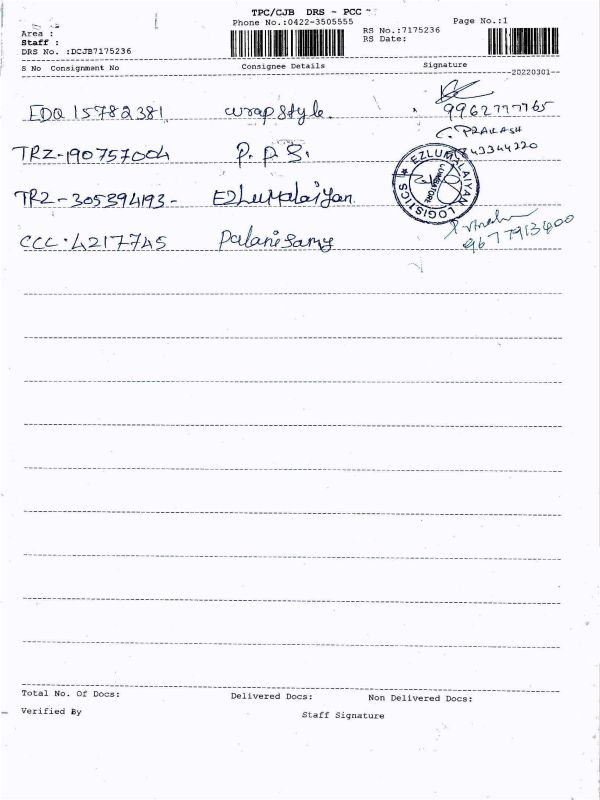 TPC/CJB DRS - PCC
Phone No.:0422-3505555
Page No.:1
Area :
RS No.:7175236
Staff :
RS Date:
DRS No. :DCJB7175236
S No Consignment No Consignee Details Signature
20220301
EDQ 15782381 wrap style. 9962777765
C. PRAKASH
TRZ-190757004 P. P. S. 43344220
TRZ-305394193- EzhuMalaiyan
EZLUMALAIYAN LOGISTICS
COIMBATORE
CCC.4217745 Palanisamy 9677913400
Total No. Of Docs: Delivered Docs: Non Delivered Docs:
Verified By Staff Signature